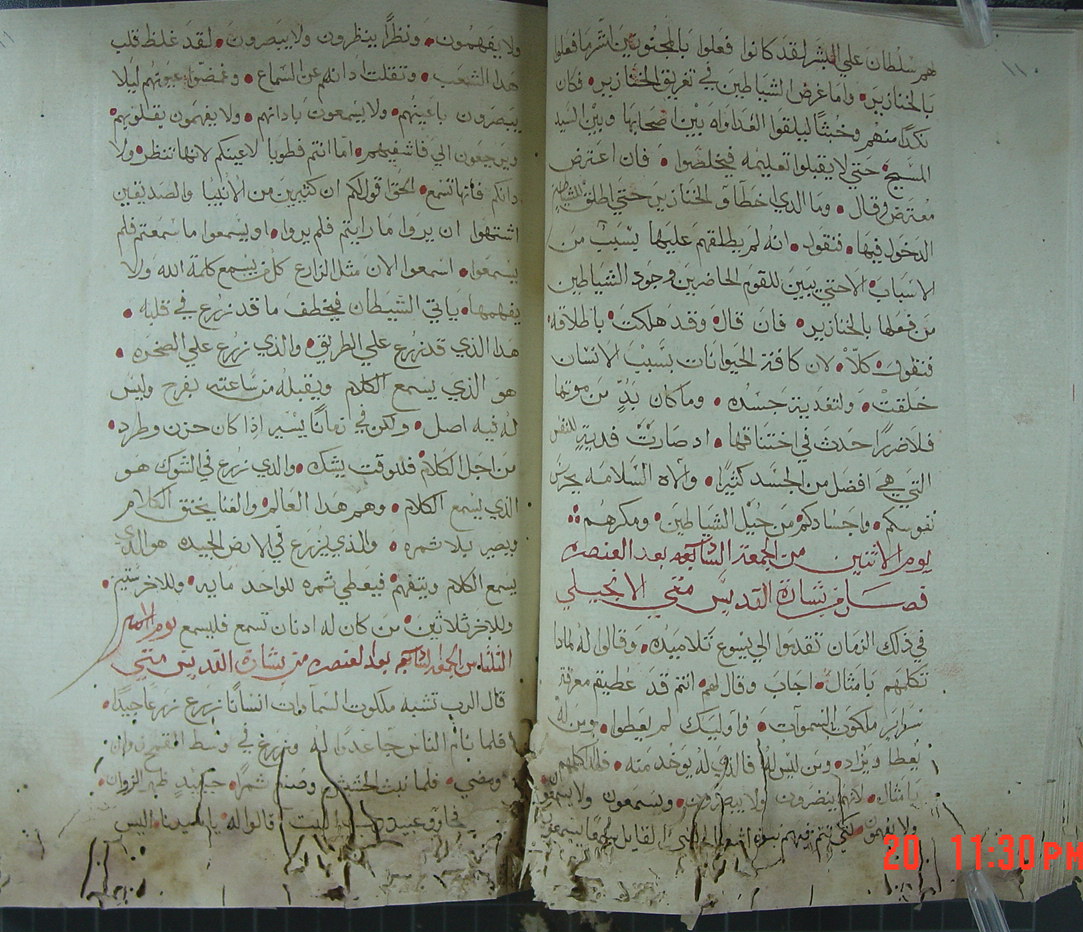 هم سلطان علي البشر لقد كانوا فعلوا بالمجنونين اشر ما فعلوا
بالخنازير • واما غرض الشياطين في تغريق الخنازير • فكان
نكدًا منهم وخبثًا ليلقوا العداوه بين اصحابها وبين السيد
المسيح • حتي لا يقبلوا تعليمه فيخلصوا • فان اعترض
معترض وقال • وما الذي اخطاة الخنازير حتي اطلق للشياطين
الدخول فيها • فنقول • انه لم يطلقهم عليها بسبب من
الاسباب • الا حتي يبين للقوم الحاضرين وجود الشياطين
من فعلها بالخنازير • فان قال • وقد هلكت • باطلاقه •
فنقول • كلا • لان كافة الحيوانات بسبب الانسان
خلقت • ولتغدية جسده • وما كان بدٍّ من موتها
فلا ضررًا حدث في اختناقها • اد صارت فدية للنفس
التي هي افضل من الجسد كثيرًا • والاه السلامه يحرس
نفوسكم • واجسادكم من حيل الشياطين • ومكرهم
يوم الاثنين من الجمعة السابعه بعد العنصره
فصل من بشارة القديس متي الانجيلي
في ذلك الزمان تقدموا الي يسوع تلاميده • وقالوا له لمادا
تكلمهم بامثال • اجاب وقال لهم • انتم قد عطيتم معرفة
سراير ملكوت السموات • واوليك لم يعطوا • ومن له
يعطا ويزاد • ومن ليس له فالذي له يوخد منه • فلهدا كلمهم
بامثال • لانهم يبصرون ولا يبصرون • ويسمعون ولا يسمعون
ولا يفهمون • لكي تتم فيهم نبوة اشعيا النبي القايل
ولا يفهمون • ونظرًا ينظرون ولا يبصرون • لقد غلظ قلب
هدا الشعب • وتقلت ادانهم عن السماع • وغمضوا عيونهم ليلا
يبصرون باعينهم • ولا يسمعون بادانهم • ولا يفهمون بقلوبهم •
ويرجعون الي فاشفيهم • اما انتم فطوبا لاعينكم لانها تنظر • ولا
دانكم فانها تسمع • الحق اقول لكم ان كثيرين من الانبيا والصديقين
اشتهوا ان يروا ما رايتم فلم يروا • او يسمعوا ما سمعتم فلم
يسمعوا • اسمعوا الان مثل الزارع كل من يسمع كلمة الله ولا
يفهمها • ياتي الشيطان فيخطف ما قد زرع في قلبه •
هدا الذي قد زرع علي الطريق • والذي زرع علي الصخره •
هو الذي يسمع الكلام ويقبله من ساعته بفرح وليس
له فيه اصل • ولكن في زمانًا يسير اذا كان حزن وطرد •
من اجل الكلام فللوقت يشك • والذي زرع في الشوك هو
الذي يسمع الكلام • وهم هدا العالم والغنا يخنق الكلام
ويصير بلا ثمره • والذي زرع في الارض الجيده هو الذي
يسمع الكلام ويتفهم • فيعطي ثمره للواحد مايه • وللاخر ستين •
وللاخر ثلاثين • من كان له ادنان تسمع فليسمع يوم
الثلثا من الجمعه السابعه بعد العنصره من بشارة القديس متي
قال الرب تشبه ملكوت السماوات انسانًا زرع زرعا جيدًا •
فلما نام الناس جا عدو له وزرع في وسط القمح زوان
ومضي • فلما نبت الحشيش وصنع ثمرًا • حينيدٍ ظهر الزوان •
فجاوو عبيد رب البيت قالوا له يا سيدنا • اليس
20 11:30 PM